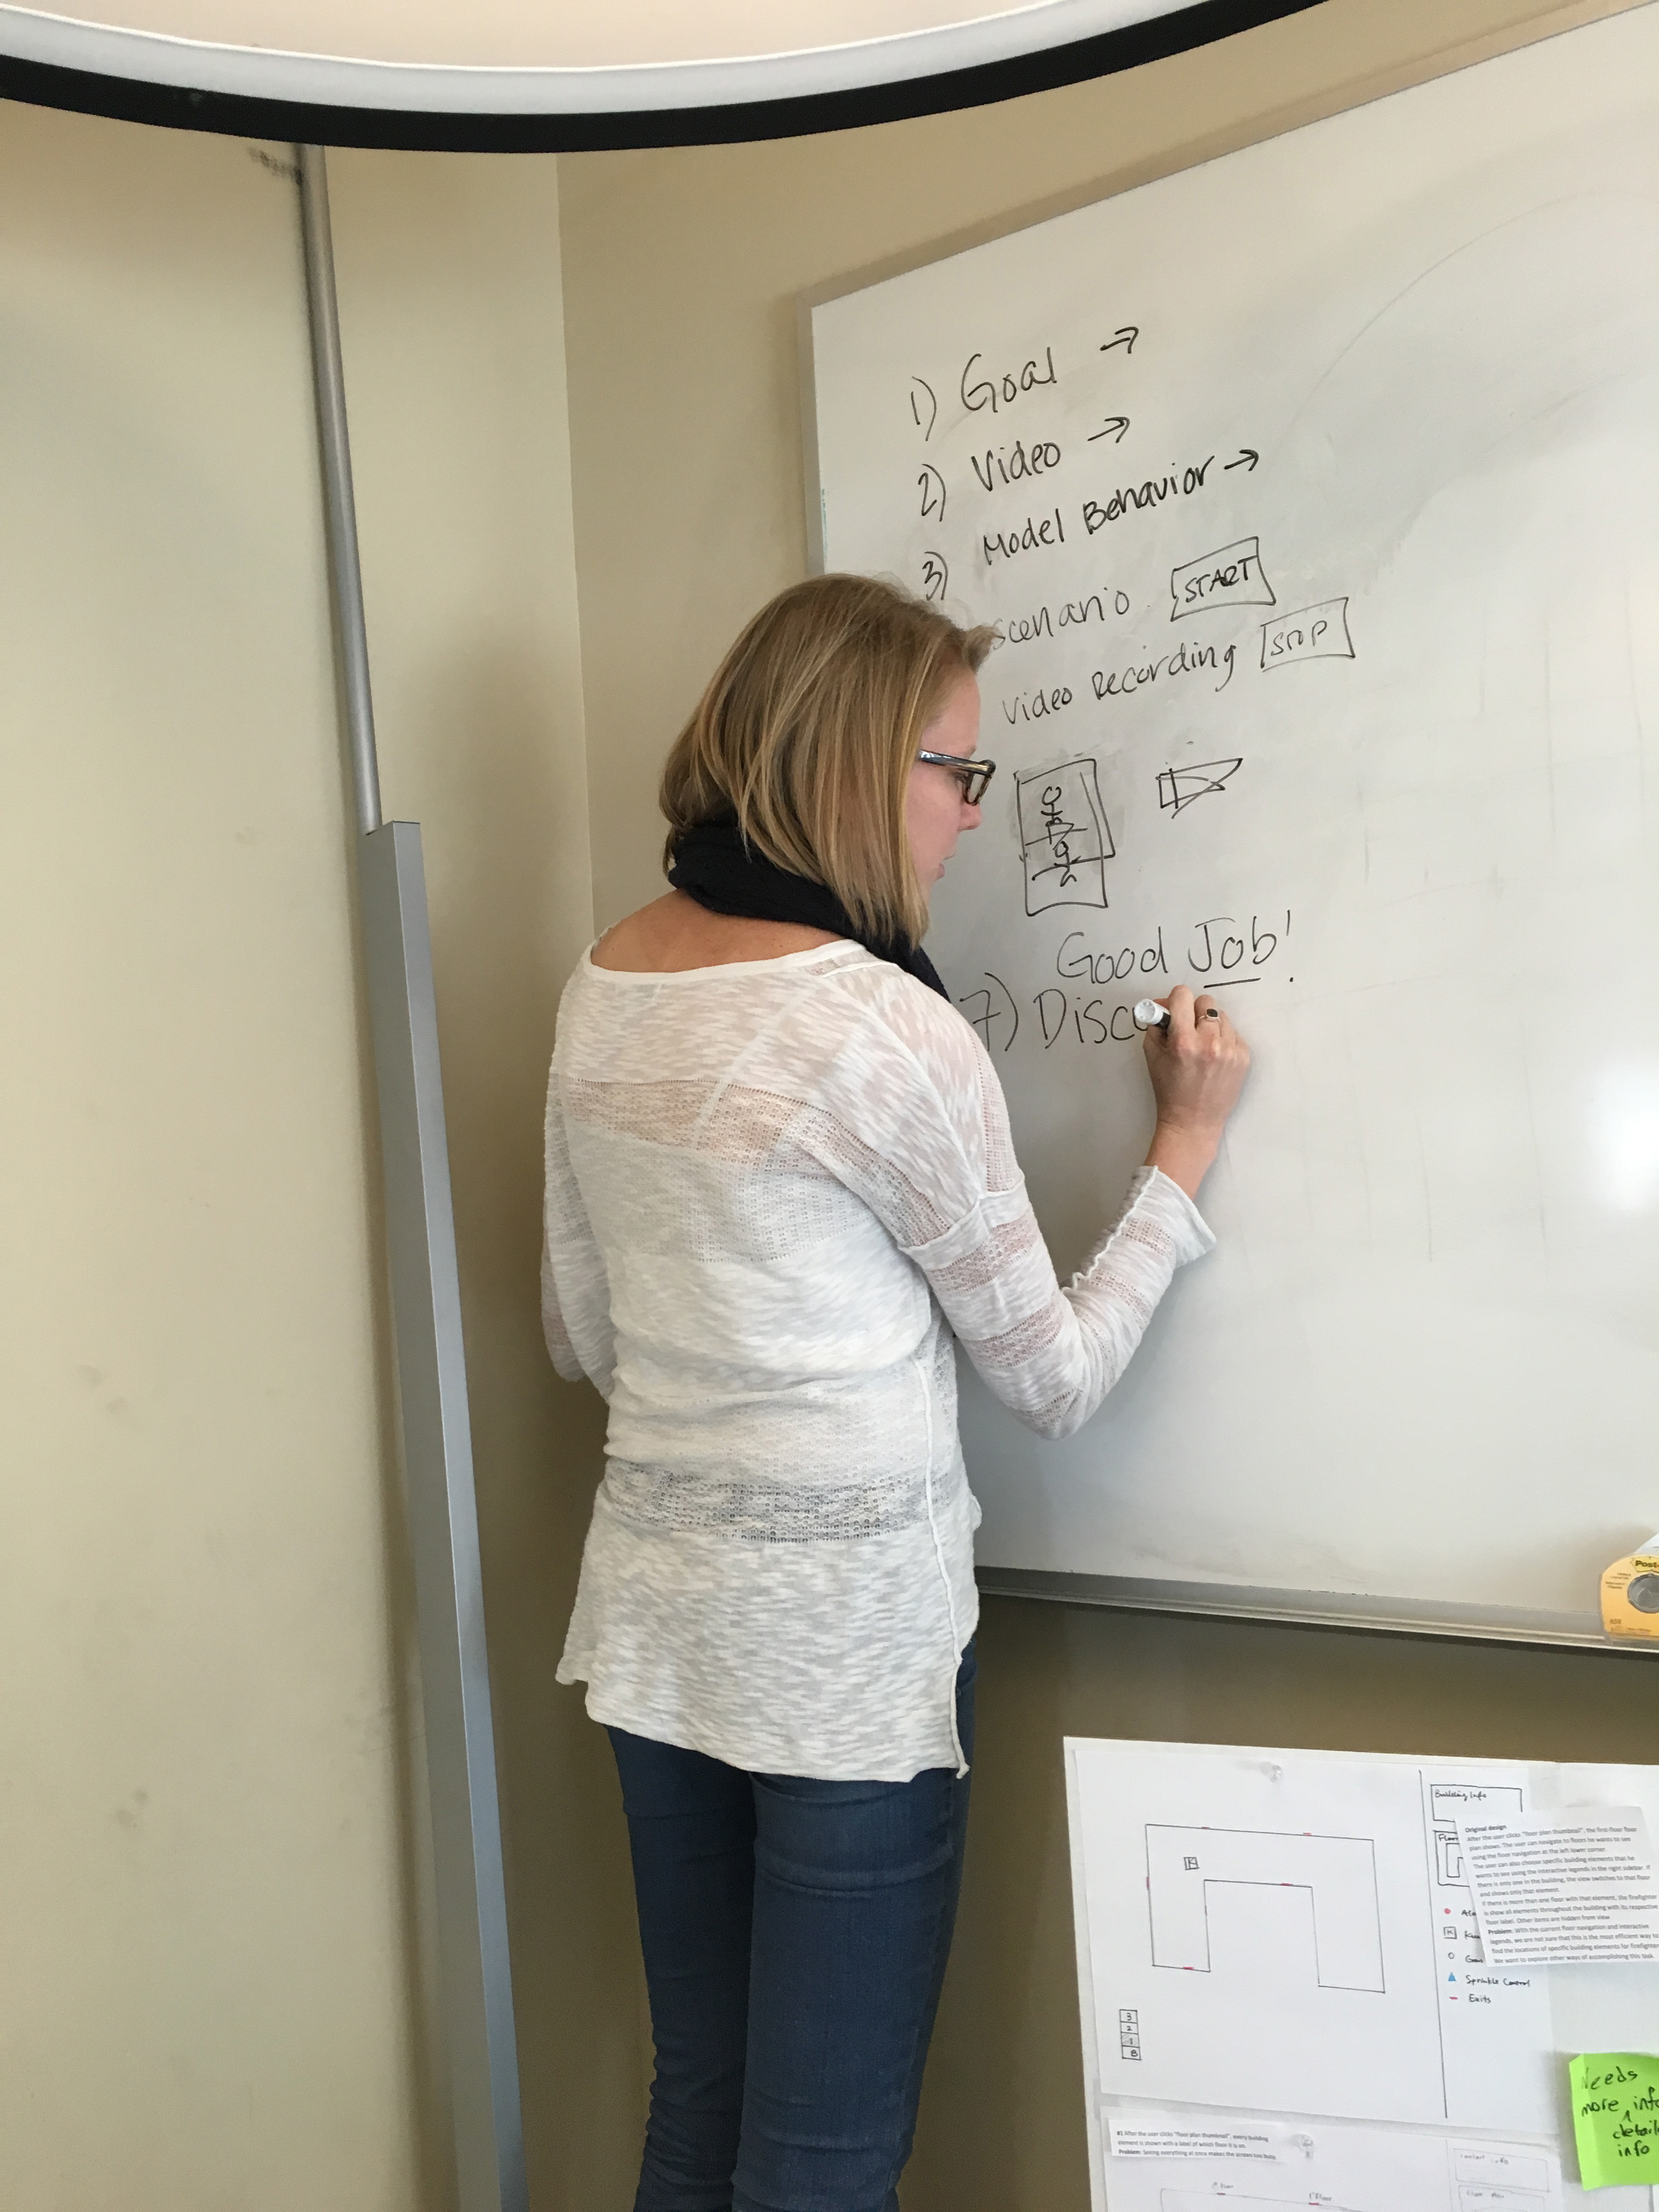 1) Goal →
2) Video →
3) Model Behavior →
scenario START
Video Recording STOP
Good Job!
7) Disc
Post-
Building Info
Floor
K
K
Sprinkle Control
Exits
3
2
1
B
Original design
After the user clicks "floor plan thumbnail", the first floor floor
plan shows. The user can navigate to floors he wants to see
using the floor navigation at the left lower corner.
The user can also choose specific building elements that he
wants to see using the interactive legends in the right sidebar. If
there is only one in the building, the view switches to that floor
and shows only that element.
If there is more than one floor with that element, the firefighter
is show all elements throughout the building with its respective
floor label. Other items are hidden from view.
Problem: With the current floor navigation and interactive
legends, we are not sure that this is the most efficient way to
find the locations of specific building elements for firefighter
We want to explore other ways of accomplishing this task.
Needs
more info
detail
info
#1 After the user clicks "floor plan thumbnail", every building
element is shown with a label of which floor it is on.
Problem: Seeing everything at once makes the screen too busy.